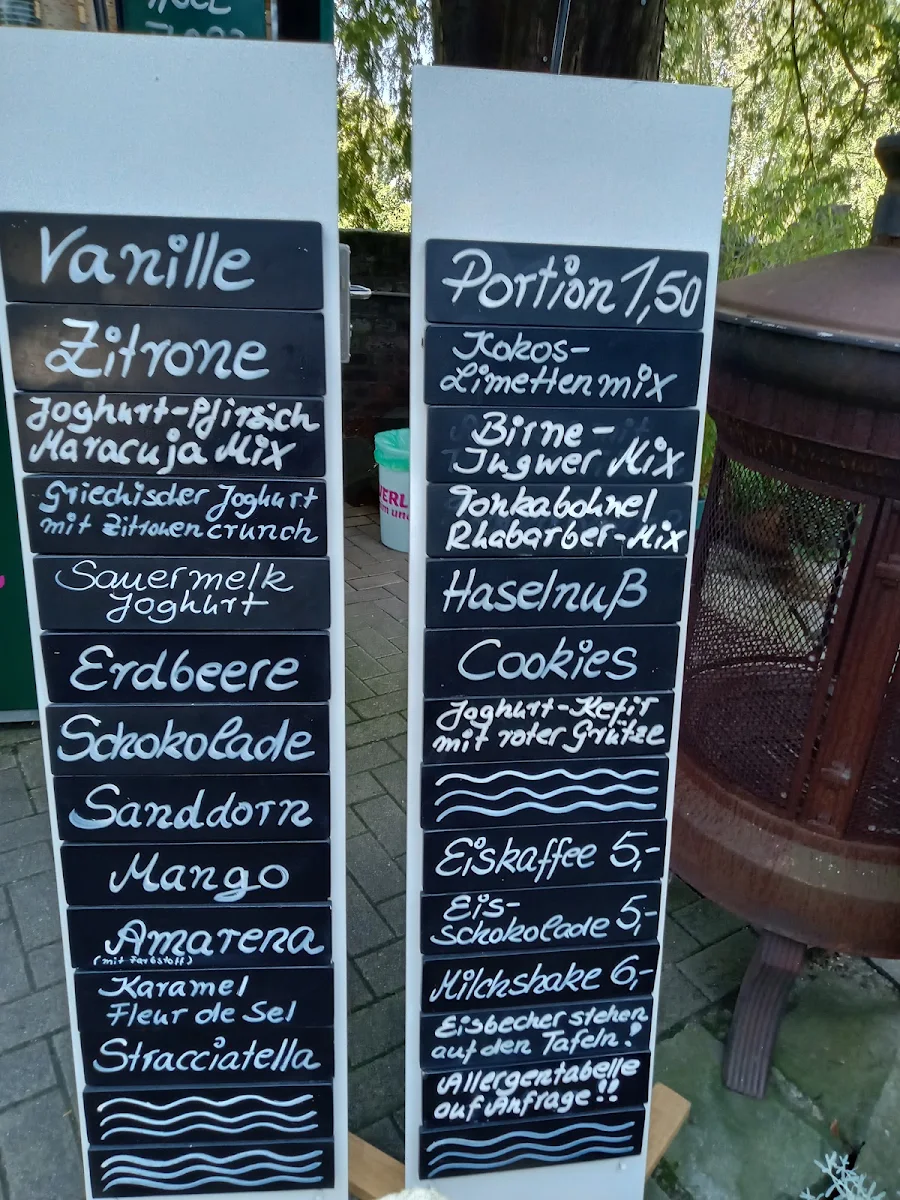 Vanille
Zitrone
Joghurt-Pfirsich
Maracuja Mix
Griechischer Joghurt
mit Zitronencrunch
Sauermelk
Joghurt
Erdbeere
Schokolade
Sanddorn
Mango
Amarena
(mit Farbstoff)
Karamel
Fleur de Sel
Stracciatella
Portion 1,50
Kokos-
Limettenmix
Birne-
Ingwer Mix
Tonkabohnel
Rhabarber-Mix
Haselnuß
Cookies
Joghurt-Kefir
mit roter Grütze
Eiskaffee 5,-
Eis-
Schokolade 5,-
Milchshake 6,-
Eisbecher stehen
auf den Tafeln!
Allergentabelle
auf Anfrage!!